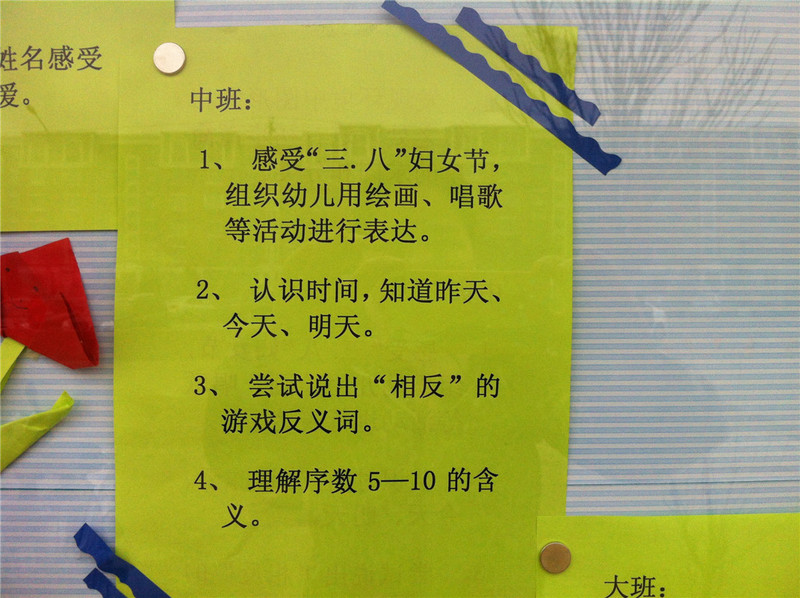 姓名感受
爱。
中班：
1、 感受“三.八”妇女节，
组织幼儿用绘画、唱歌
等活动进行表达。
2、 认识时间，知道昨天、
今天、明天。
3、 尝试说出“相反”的
游戏反义词。
4、 理解序数 5—10 的含
义。
大班：